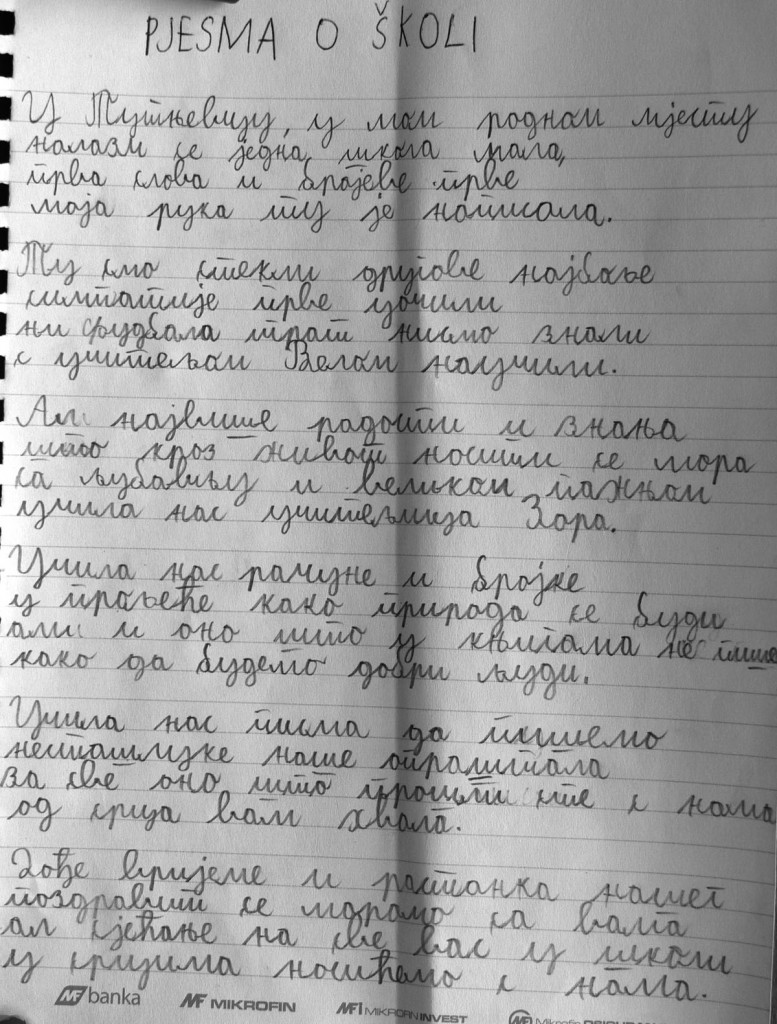 PJESMA O ŠKOLI
У Тутњевцу, у мом родном мјесту
налази се једна школа мала,
прва слова и бројеве прве
моја рука ту је написала.
Ту смо стекли другове најбоље
симпатије прве уочили
ни фудбала играт нисмо знали
с учитељом Велом научили.
Ал највише радости и знања
што кроз живот носити се мора
са љубављу и великом пажњом
учила нас учитељица Зора.
Учила нас рачуне и бројке
у прољеће како природа се буди
али и оно што у књигама не пише
како да будемо добри људи.
Учила нас писма да пишемо
несташлуке наше опраштала
за све оно што прошли сте с нама
од срца вам хвала.
Дође вријеме и растанка нашег
поздравит се морамо са вама
ал сјећање на све вас из школи
у срцима носићемо с нама.
MF banka
MF MIKROFIN
MFI MIKROFIN INVEST